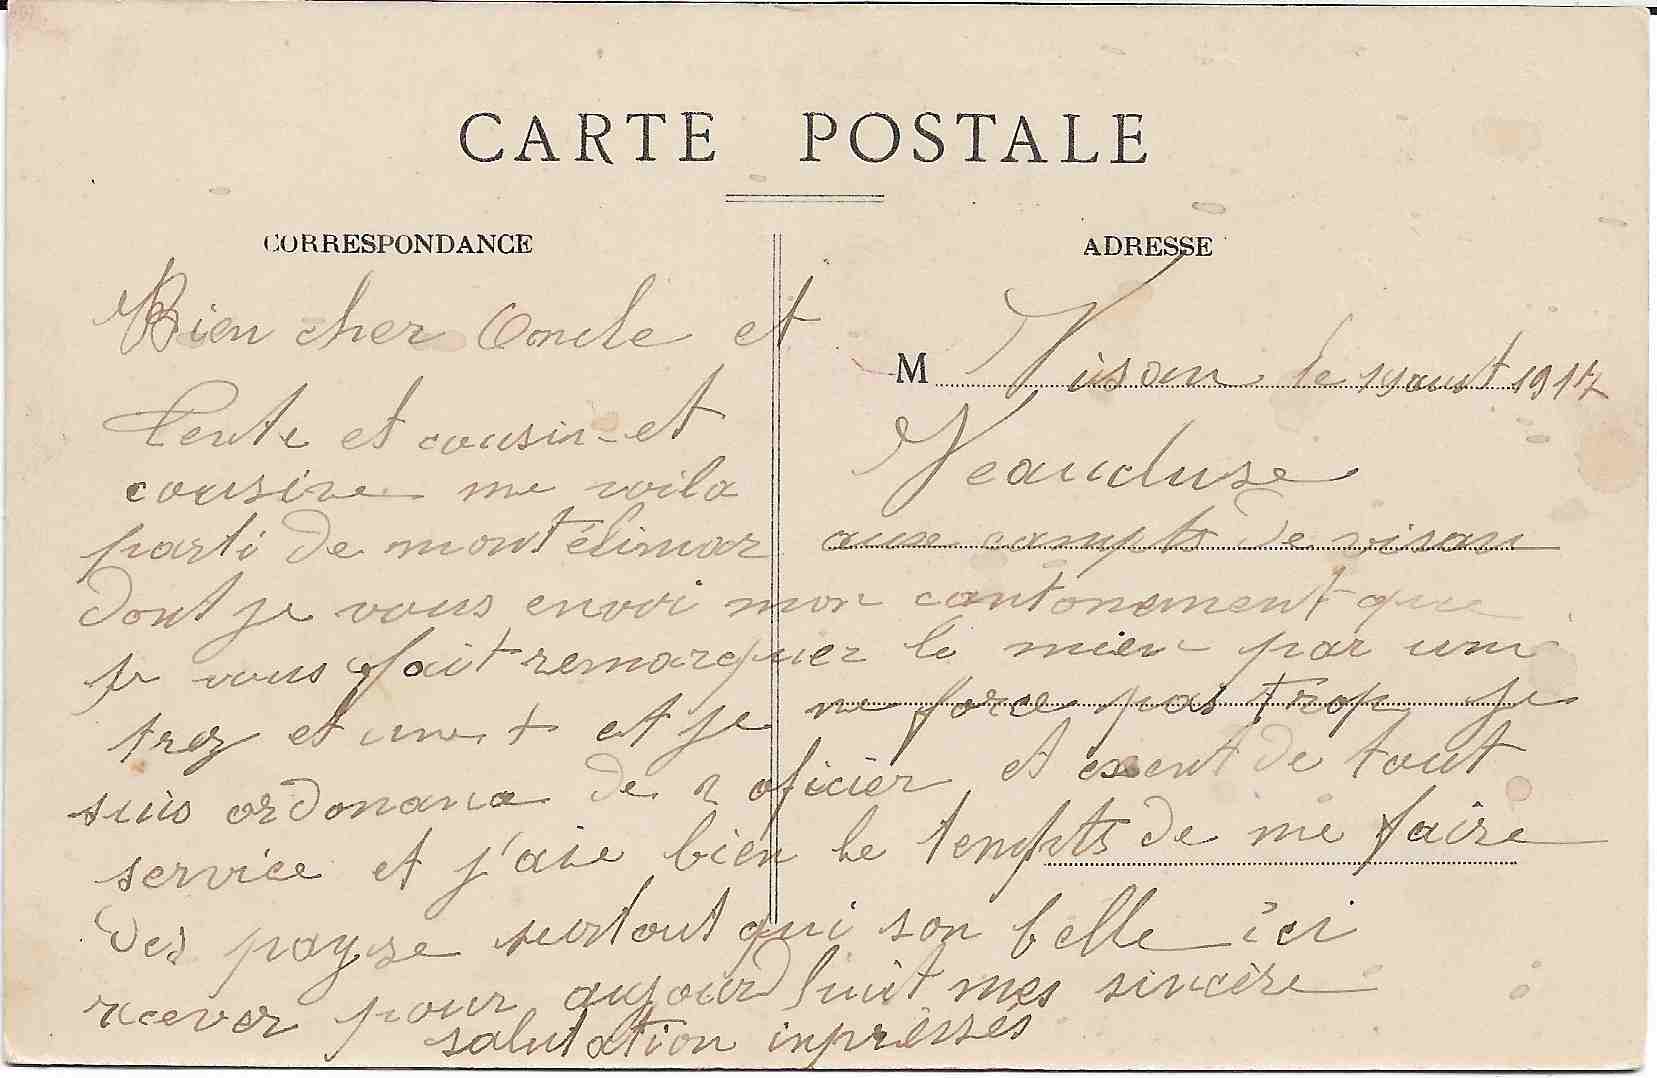 CARTE POSTALE
CORRESPONDANCE
ADRESSE
M
Visan le 19 aout 1917
Veaucluse
Bien cher Oncle et
Tente et cousin et
cousine me voila
parti de montélimar aux campts de visan
dont je vous envoi mon cantonement que
je vous fait remarquer le mien par une
trez et une + et je ne force pas trop je
suis ordonana de 2 oficier et exent de tout
service et j'aie bien le tempts de me faire
des payse surtout qui son belle ici
rcever pour aujourd huit mes sincère
salutation inpréssés